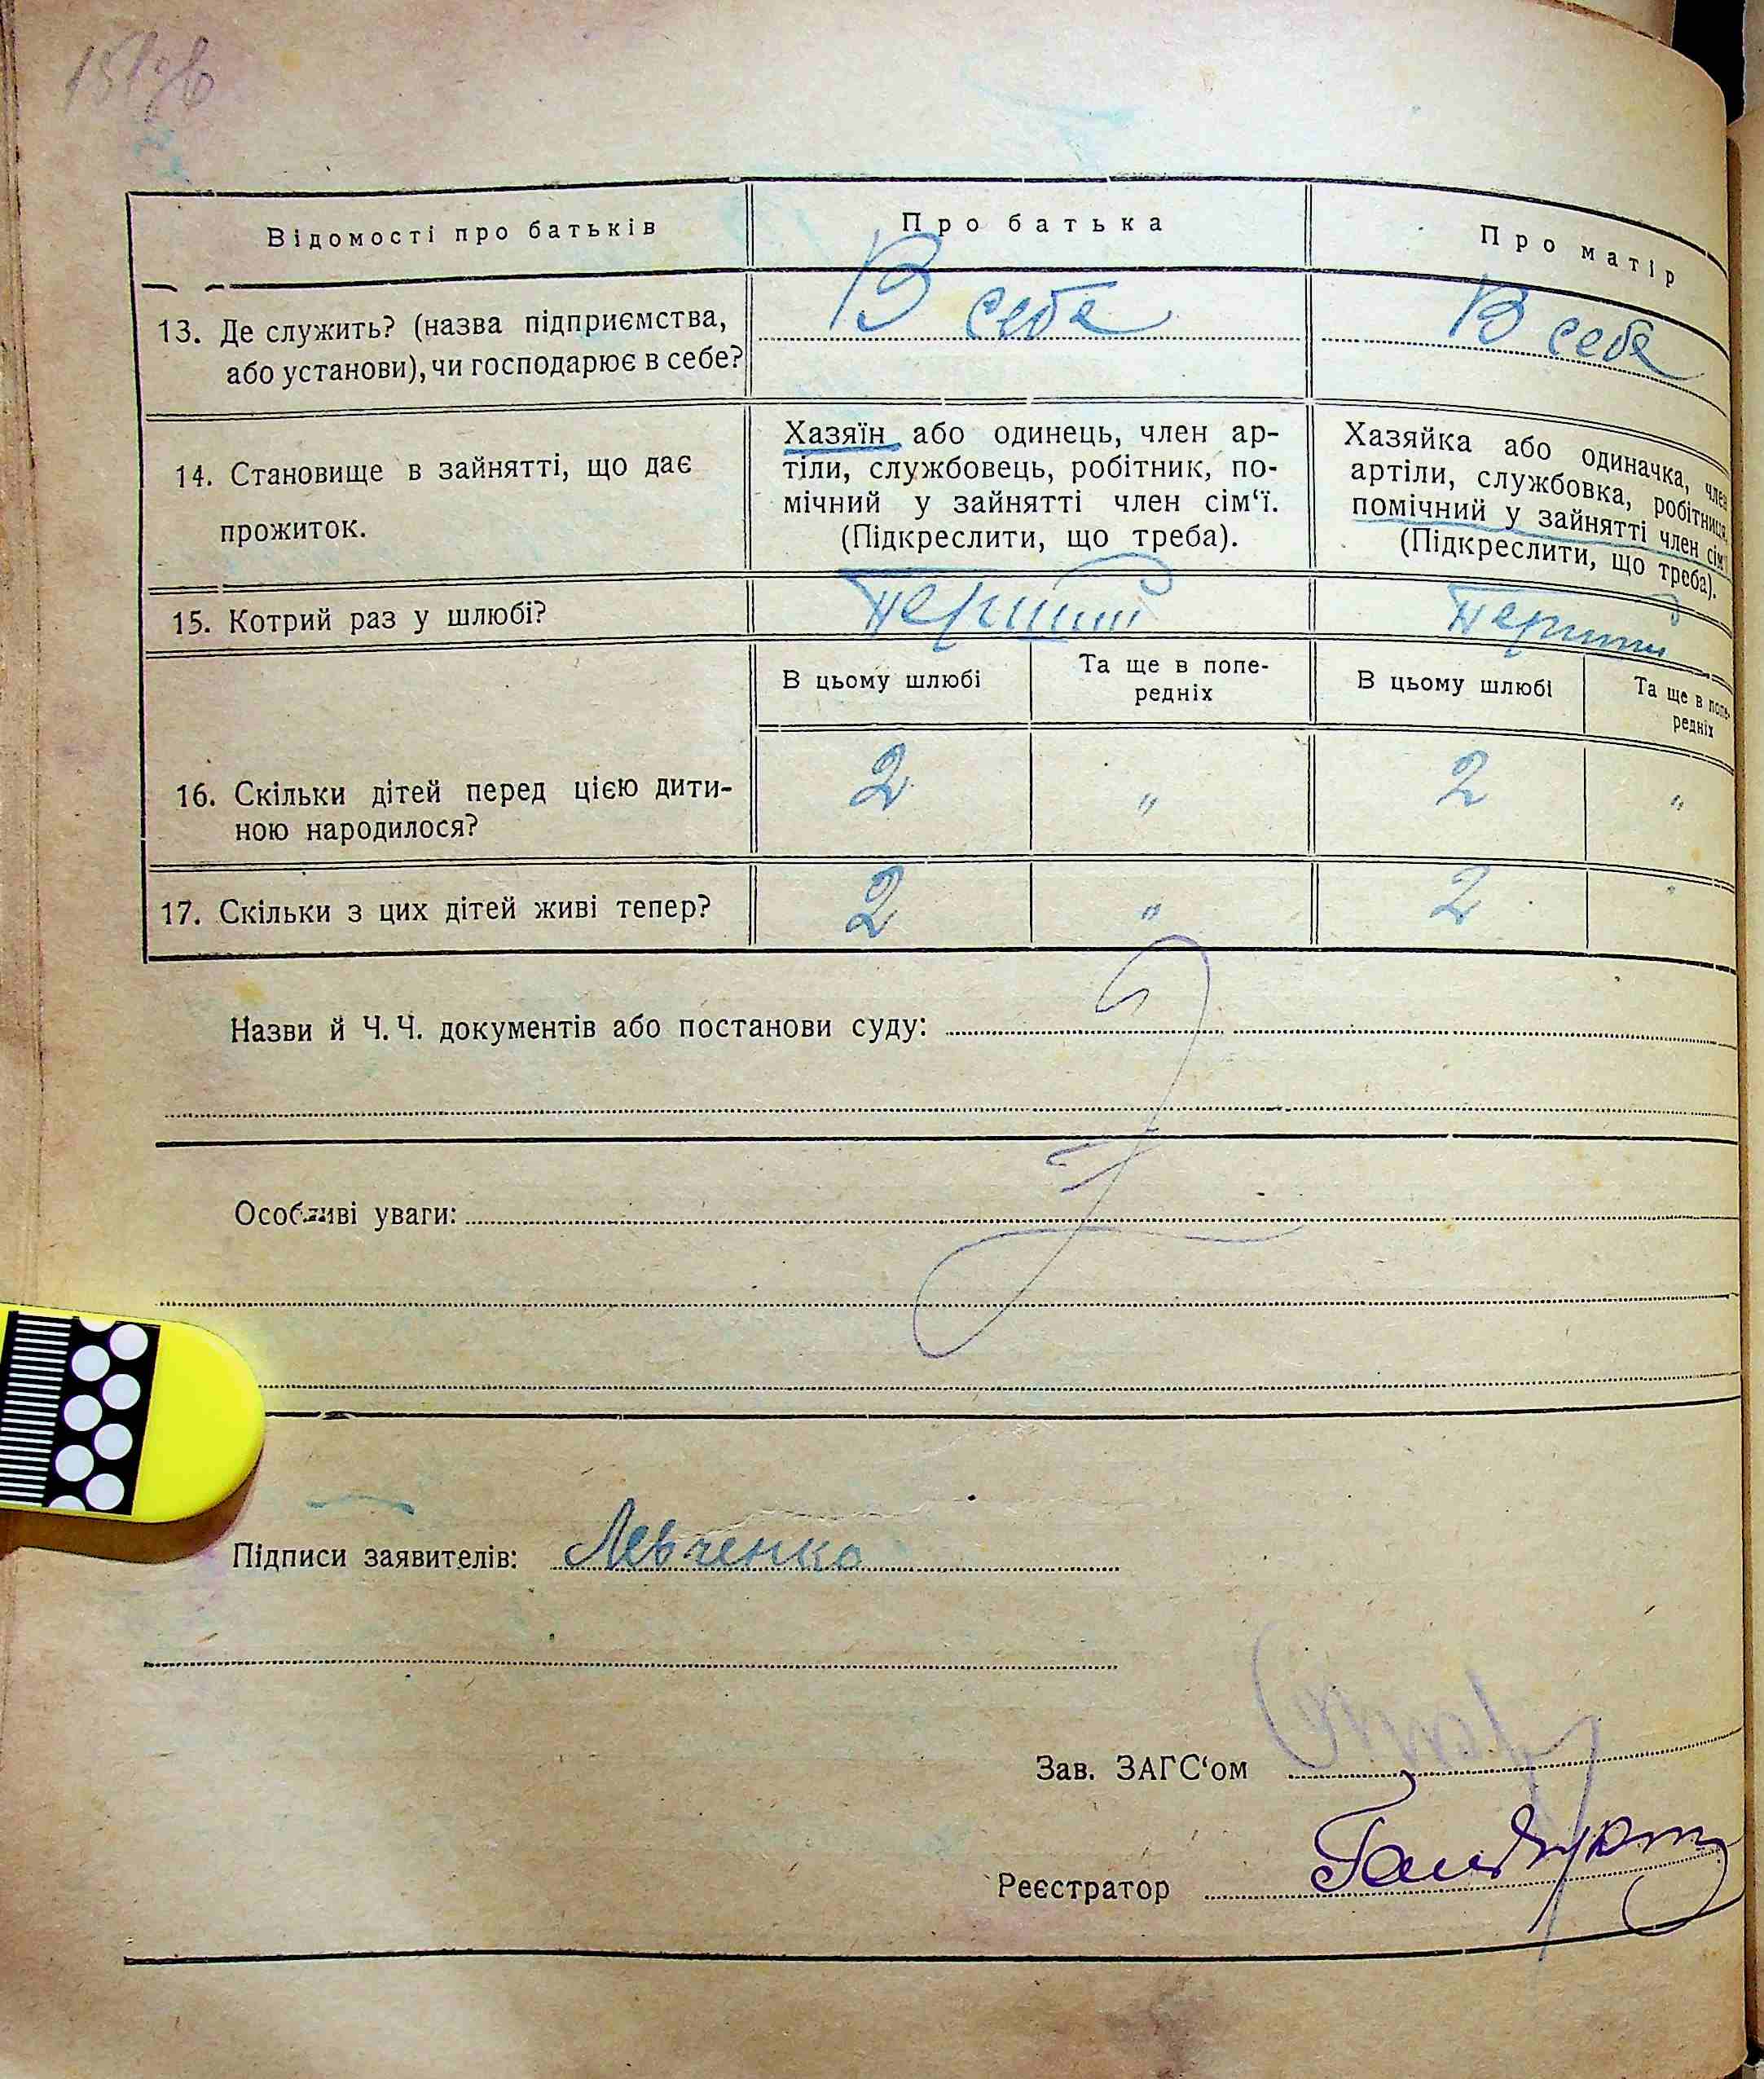 151зв
Відомості про батьків
Про батька
Про матір
13. Де служить? (назва підприємства,
або установи), чи господарює в себе?
В себе
В себе
14. Становище в зайнятті, що дає
прожиток.
Хазяїн або одинець, член ар-
тіли, службовець, робітник, по-
мічний у зайнятті член сім‘ї.
(Підкреслити, що треба).
Хазяйка або одиначка, член
артіли, службовка, робітниця,
помічний у зайнятті член сім‘ї
(Підкреслити, що треба).
15. Котрий раз у шлюбі?
Перший
Перший
В цьому шлюбі
Та ще в попе-
редніх
В цьому шлюбі
Та ще в попе-
редніх
16. Скільки дітей перед цією дити-
ною народилося?
2
"
2
"
17. Скільки з цих дітей живі тепер?
2
"
2
"
Назви й Ч. Ч. документів або постанови суду:
Особливі уваги:
Підписи заявителів: Левченко
Зав. ЗАГС‘ом
Реєстратор